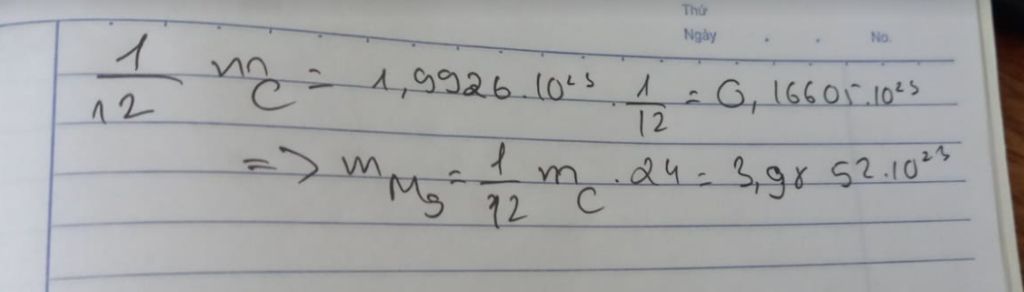 Thứ
Ngày . . No.
1/12 m_C = 1,9926.10^23 . 1/12 = 0,16605.10^23
=> m_Mg = 1/12 m_C . 24 = 3,98 52.10^23